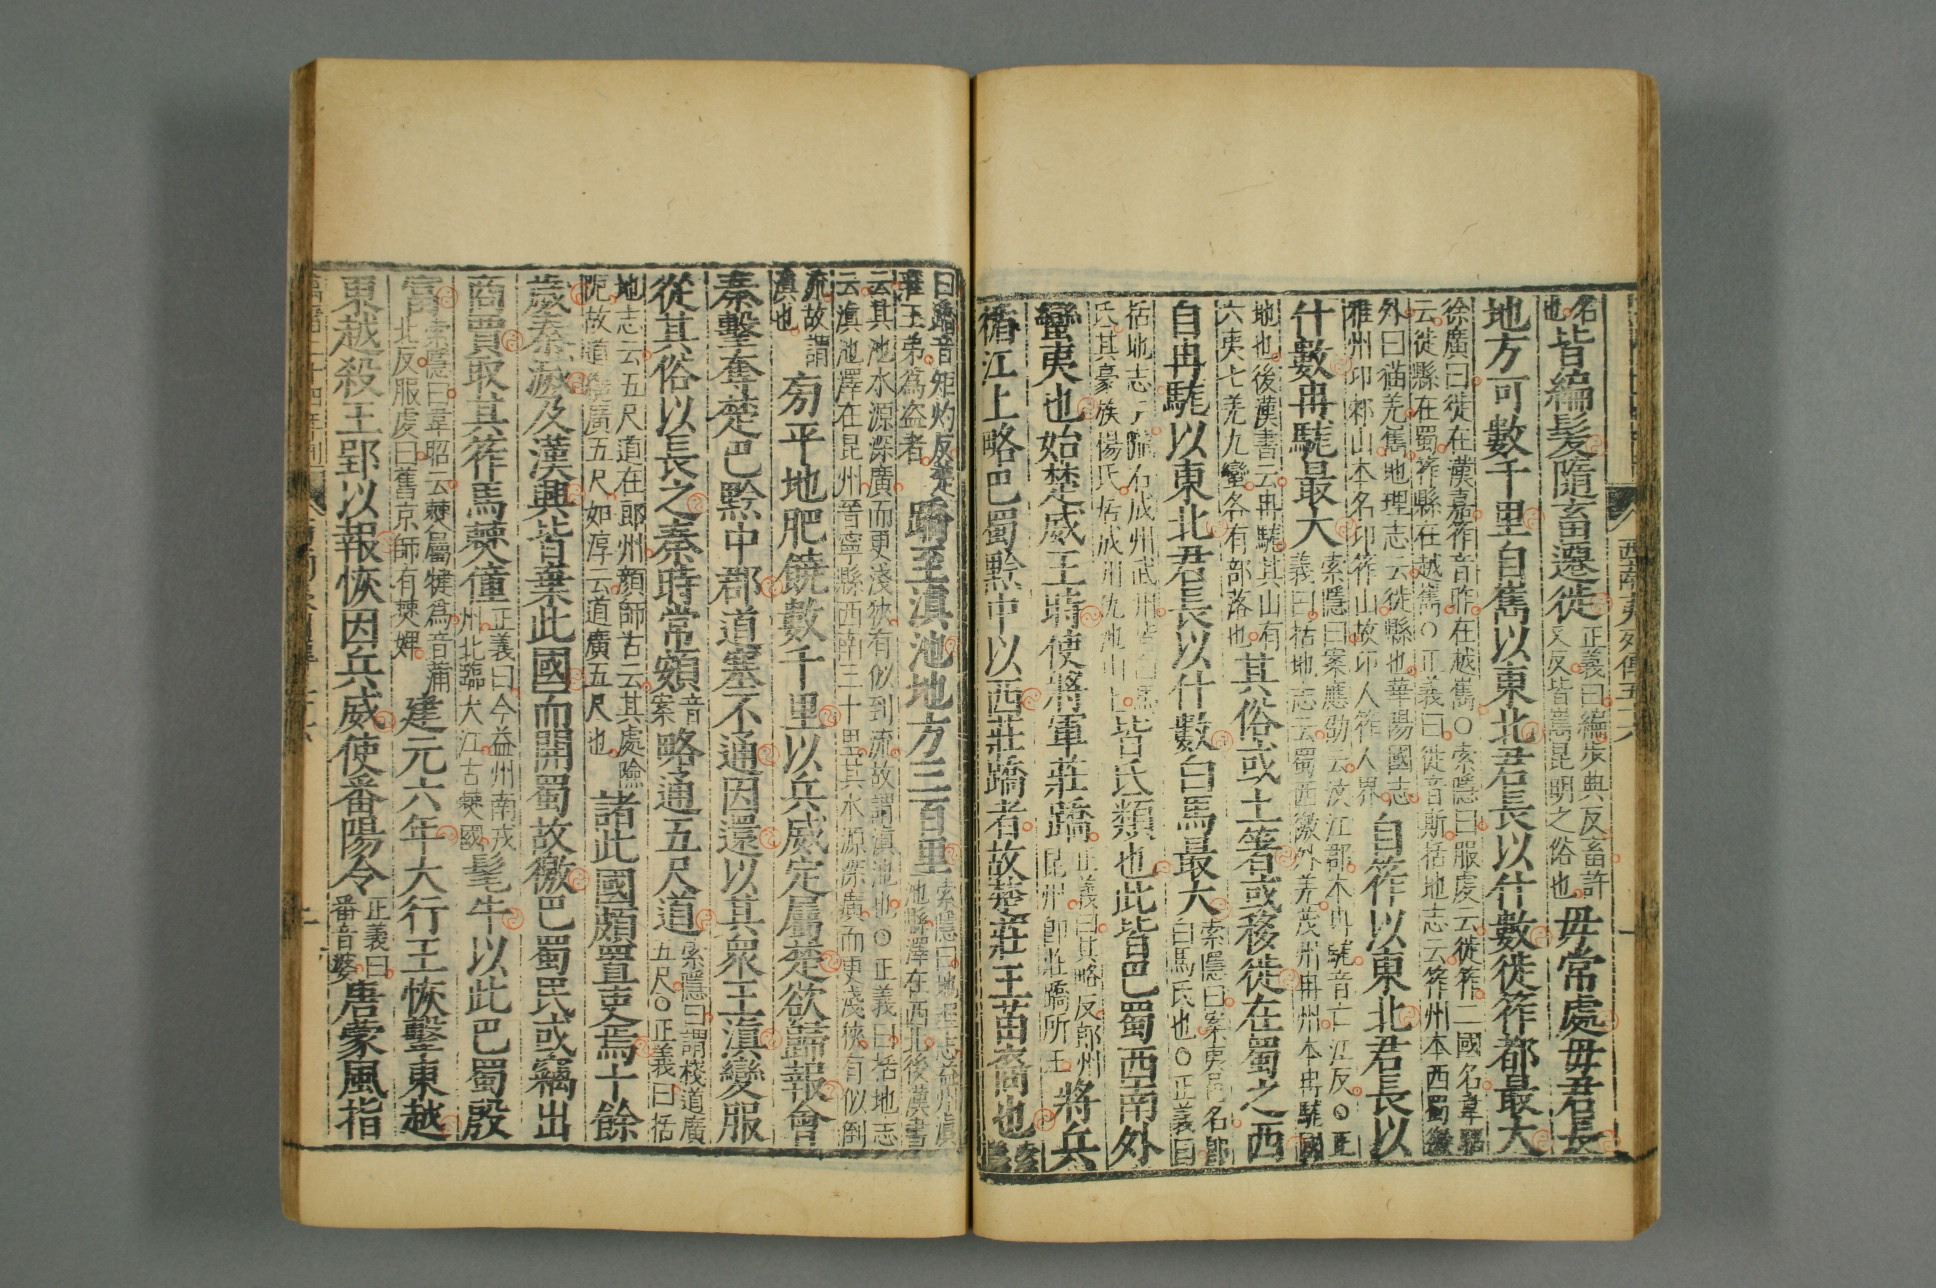 西南夷列傳五十六
名也皆編髮隨畜遷徙正義曰編步典反畜許又反皆嶲昆明之俗也毋常處毋君長
地方可數千里自嶲以東北君長以什數徙筰都最大
徐廣曰徙在漢嘉筰音昨在越嶲○索隱曰服虔云徙筰二國名韋昭
云徙縣在蜀筰縣在越嶲○正義曰徙音斯括地志云筰州本西蜀徼
外曰猫羌嶲地理志云徙縣也華陽國志
雅州卭郲山本名卭筰山故卭人筰人界自筰以東北君長以
什數冉駹最大索隱曰案應劭云汶江郡本冉駹音亡江反○正義曰括地志云蜀西徼外羌茂州冉州本冉駹國
地也後漢書云冉駹其山有
六夷七羌九蠻各有部落也其俗或土箸或移徙在蜀之西
自冉駹以東北君長以什數白馬最大索隱曰案夷邑名白馬氐也○正義曰
括地志云隴右成州武州皆白馬
氐其豪族楊氏居成州仇池山上皆氐類也此皆巴蜀西南外
蠻夷也始楚威王時使將軍莊蹻正義曰其略反郎州昆州即莊蹻所王將兵
循江上略巴蜀黔中以西莊蹻者故楚莊王苗裔也索隱
曰蹻音矩灼反楚
莊王弟爲盗者蹻至滇池地方三百里索隱曰地理志益州滇池縣澤在西北後漢書
云其池水源深廣而更淺狹有似到流故謂滇池也○正義曰括地志
云滇池澤在昆州晉寧縣西南三十里其水源深廣而更淺狹有似倒
流故謂
滇也㫄平地肥饒數千里以兵威定屬楚欲歸報會
秦擊奪楚巴黔中郡道塞不通因還以其衆王滇變服
從其俗以長之秦時常頞音案略通五尺道索隱曰謂棧道廣五尺○正義曰括
地志云五尺道在郎州顔師古云其處險
阸故道纔廣五尺如淳云道廣五尺也諸此國頗置吏焉十餘
歲秦滅及漢興皆棄此國而開蜀故徼巴蜀民或竊出
商賈取其筰馬僰僮正義曰今益州南戎州北臨大江古僰國髦牛以此巴蜀殷
富索隱曰韋昭云僰屬犍爲音蒲北反服虔曰舊京師有僰婢建元六年大行王恢擊東越
東越殺王郢以報恢因兵威使番陽令正義曰番音婆唐蒙風指